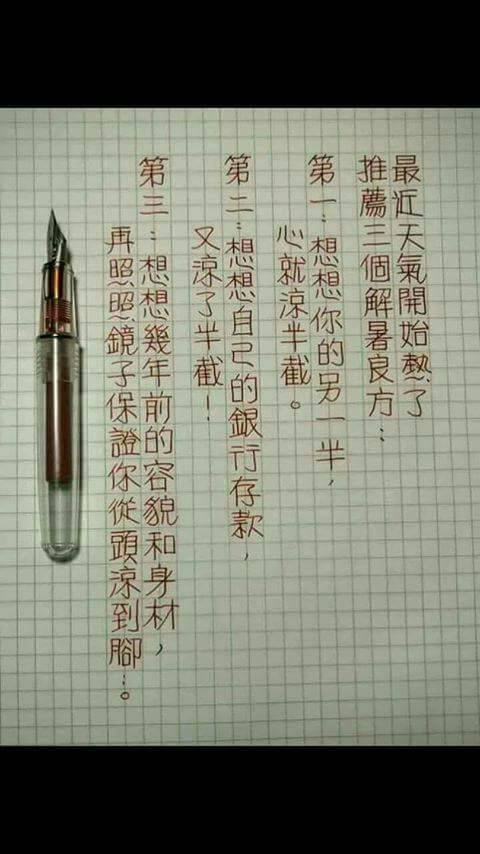 最近天氣開始熱了
推薦三個解暑良方：
第一：想想你的另一半，
心就涼半截。
第二：想想自己的銀行存款，
又涼了半截！
第三：想想幾年前的容貌和身材，
再照照鏡子保證你從頭涼到腳…。